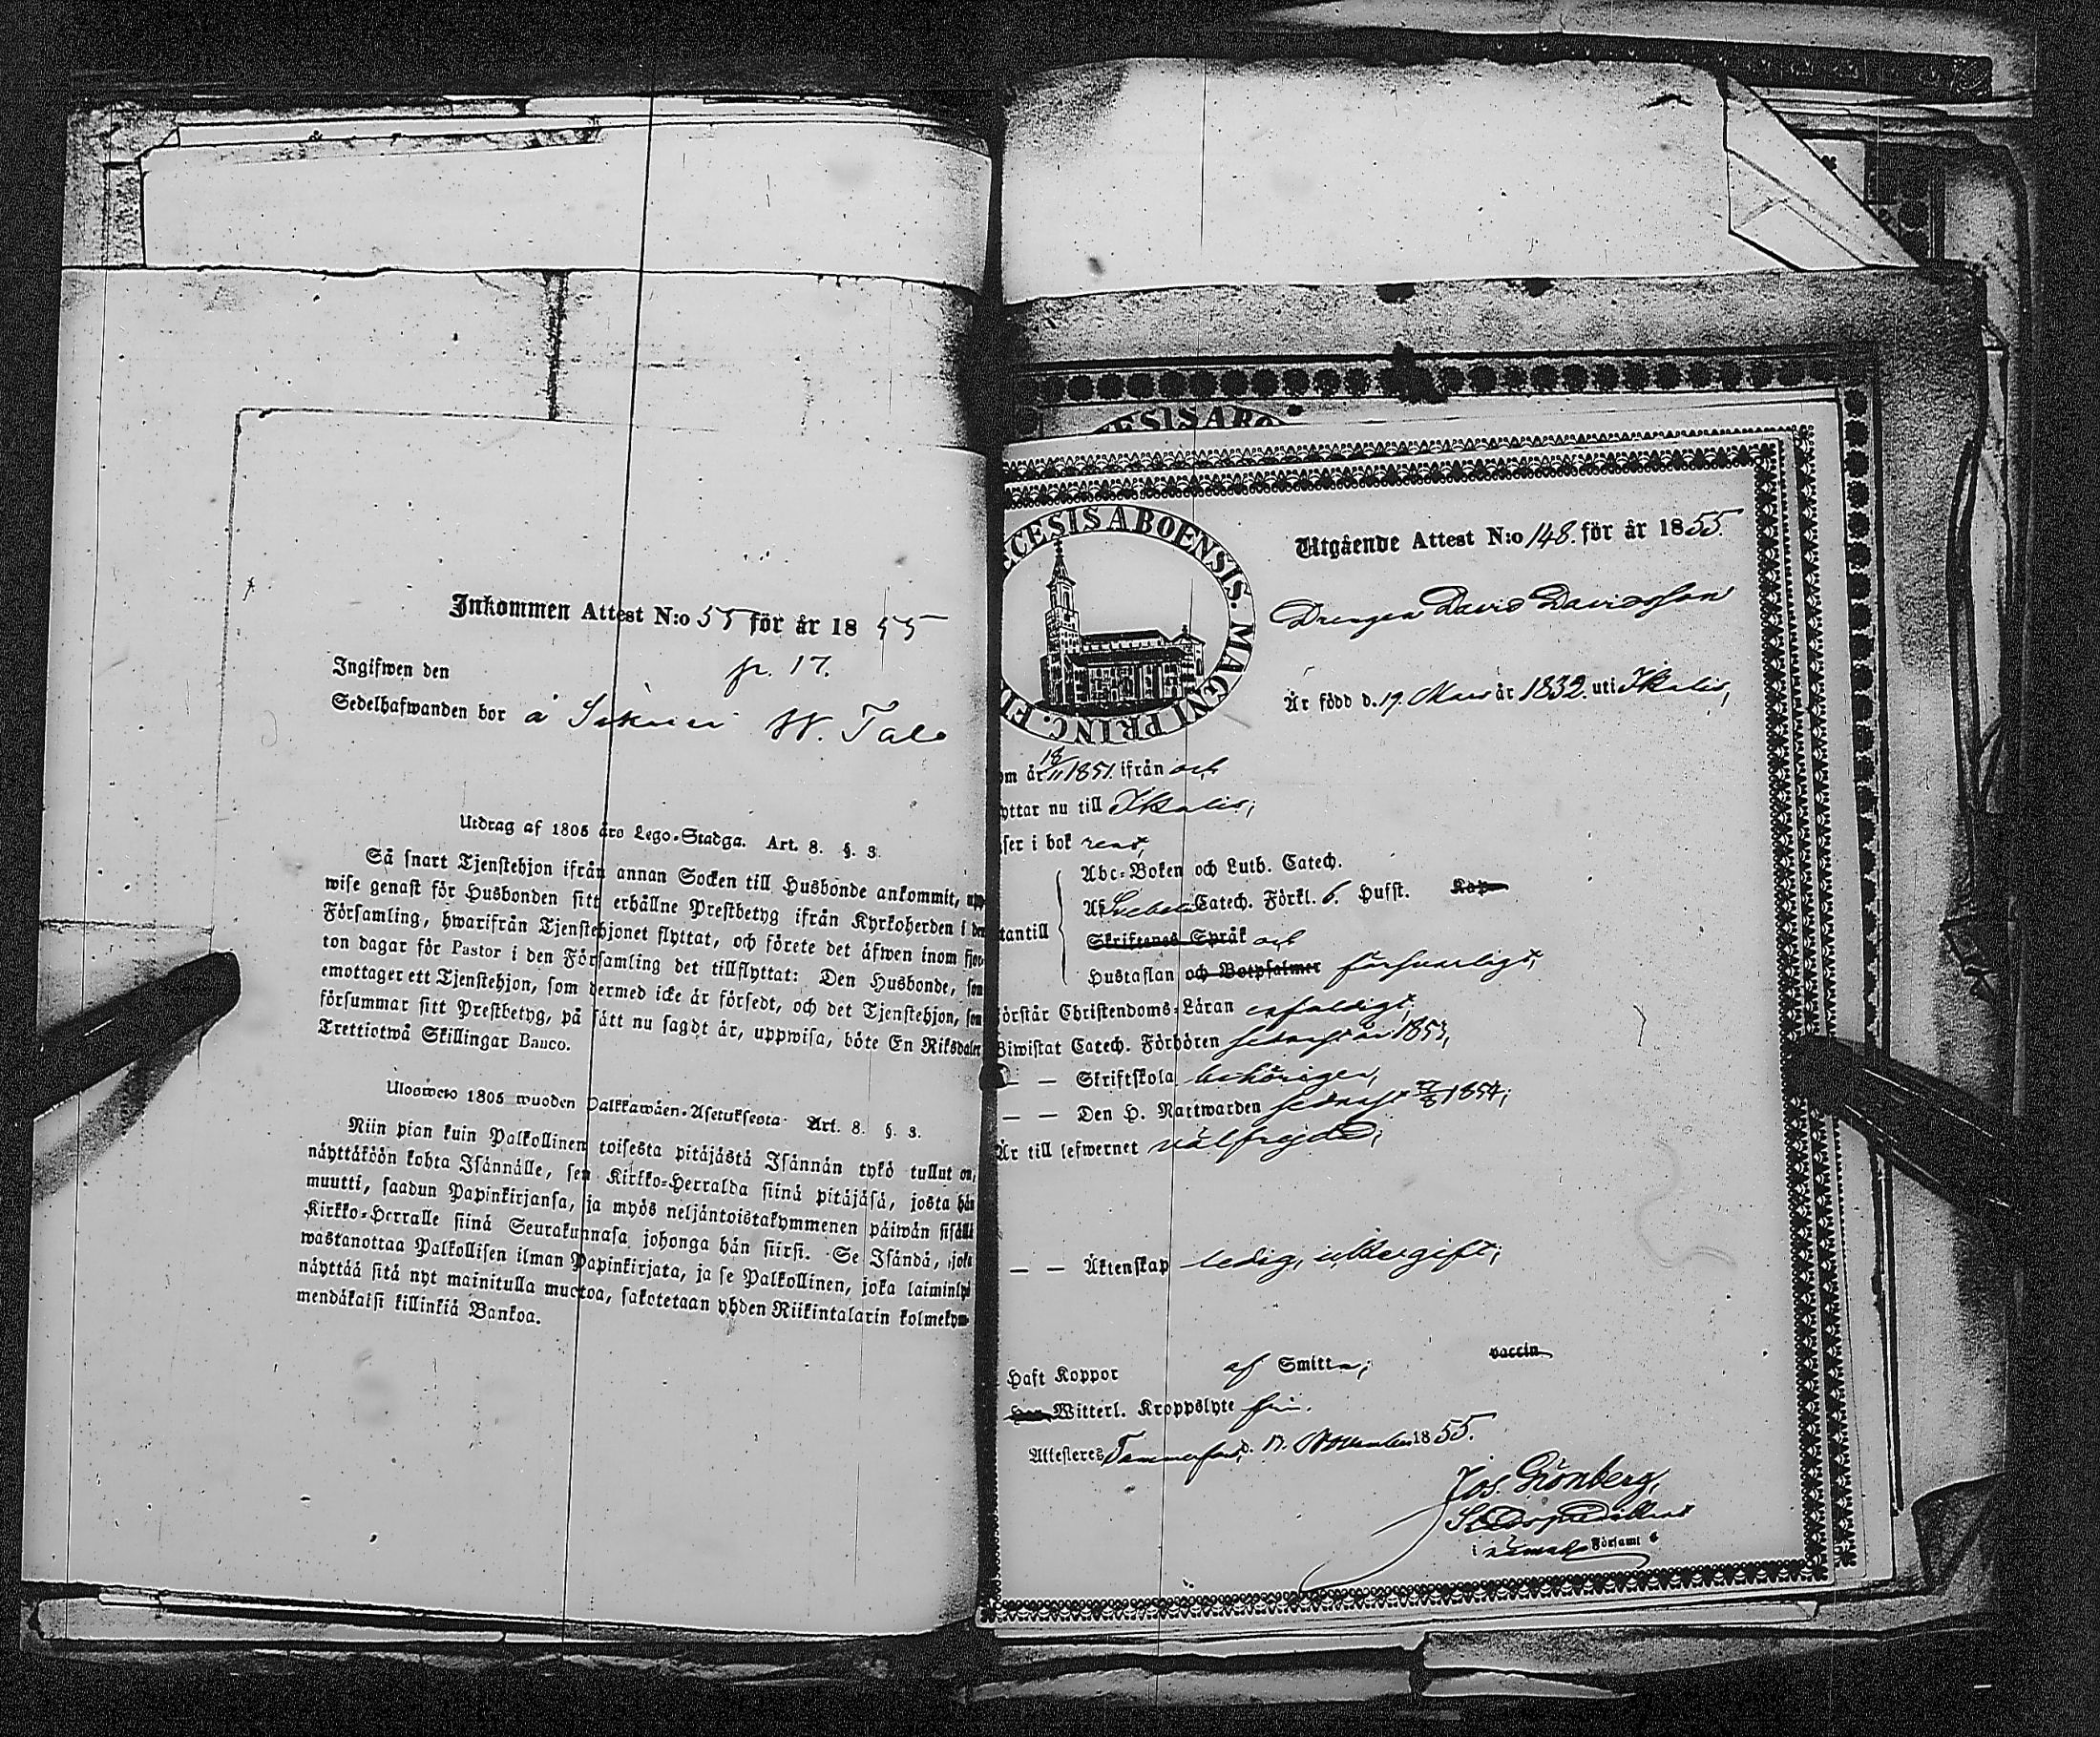 Inkommen Attest N:o 55 för år 18 55
Ingifwen den fr. 17.
Sedelhafwanden bor å W. Tale
Utdrag af 1805 års Lego-Stadga. Art. 8. §. 3.
Så snart Tjenstehjon ifrån annan Socken till Husbonde ankommit, upp
wise genast för Husbonden sitt erhållne Prestbetyg ifrån Kyrkoherden i den
Församling, hwarifrån Tjenstehjonet flyttat, och förete det äfwen inom fjor-
ton dagar för Pastor i den Församling det tillflyttat: Den Husbonde, som
emottager ett Tjenstehjon, som dermed icke är försedt, och det Tjenstehjon, som
försummar sitt Prestbetyg, på sätt nu sagdt är, uppwisa, böte En Riksdaler
Trettiotwå Skillingar Banco.
Ulosweto 1805 wuoden Palkkawäen-Asetuksesta. Art. 8. §. 3.
Niin pian kuin Palkollinen toisesta pitäjästä Isännän tykö tullut on,
näyttäköön kohta Isännälle, sen Kirkko-Herralda siinä pitäjäsä, josta hän
muutti, saadun Papinkirjansa, ja myös neljäntoistakymmenen päiwän sisällä
Kirkko-Herralle siinä Seurakunnasa johonga hän siirsi. Se Isändä, joka
wastanottaa Palkollisen ilman Papinkirjata, ja se Palkollinen, joka laiminlyö
näyttää sitä nyt mainitulla muotoa, sakotetaan yhden Riikintalarin kolmekym-
mendäkaksi killinkiä Bankoa.
ESIS ABO
ECESIS ABOENSIS. MAGNI PRINC. FI
Utgående Attest N:o 148. för år 1855.
Drengen David Davidsson
Är född d. 19. Mars år 1832. uti Ikalis,
om år 18/11 1851. ifrån och
yttar nu till Ikalis;
ser i bok rent,
Abc-Boken och Luth. Catech.
Af Svebelii Catech. Förkl. 6. Hufst. Kap
tantill
Skriftenes Språk och
Hustaflan och Botpsalmer försvarligt,
örstår Christendoms-Läran enfaldigt,
Biwistat Catech. Förhören sednast år 1853,
— — Skriftskola behörigen,
— — Den H. Nattwarden sednast 1854;
Är till lefwernet välfrejdad;
— — Äktenskap ledig, obbergift;
Haft Koppor af Smitta; vaccin
Har Witterl. Kroppslyte fri.
Attesteres Tammerfors, d. 17. November 1855.
Jos. Grönberg,
i nämnde Församl